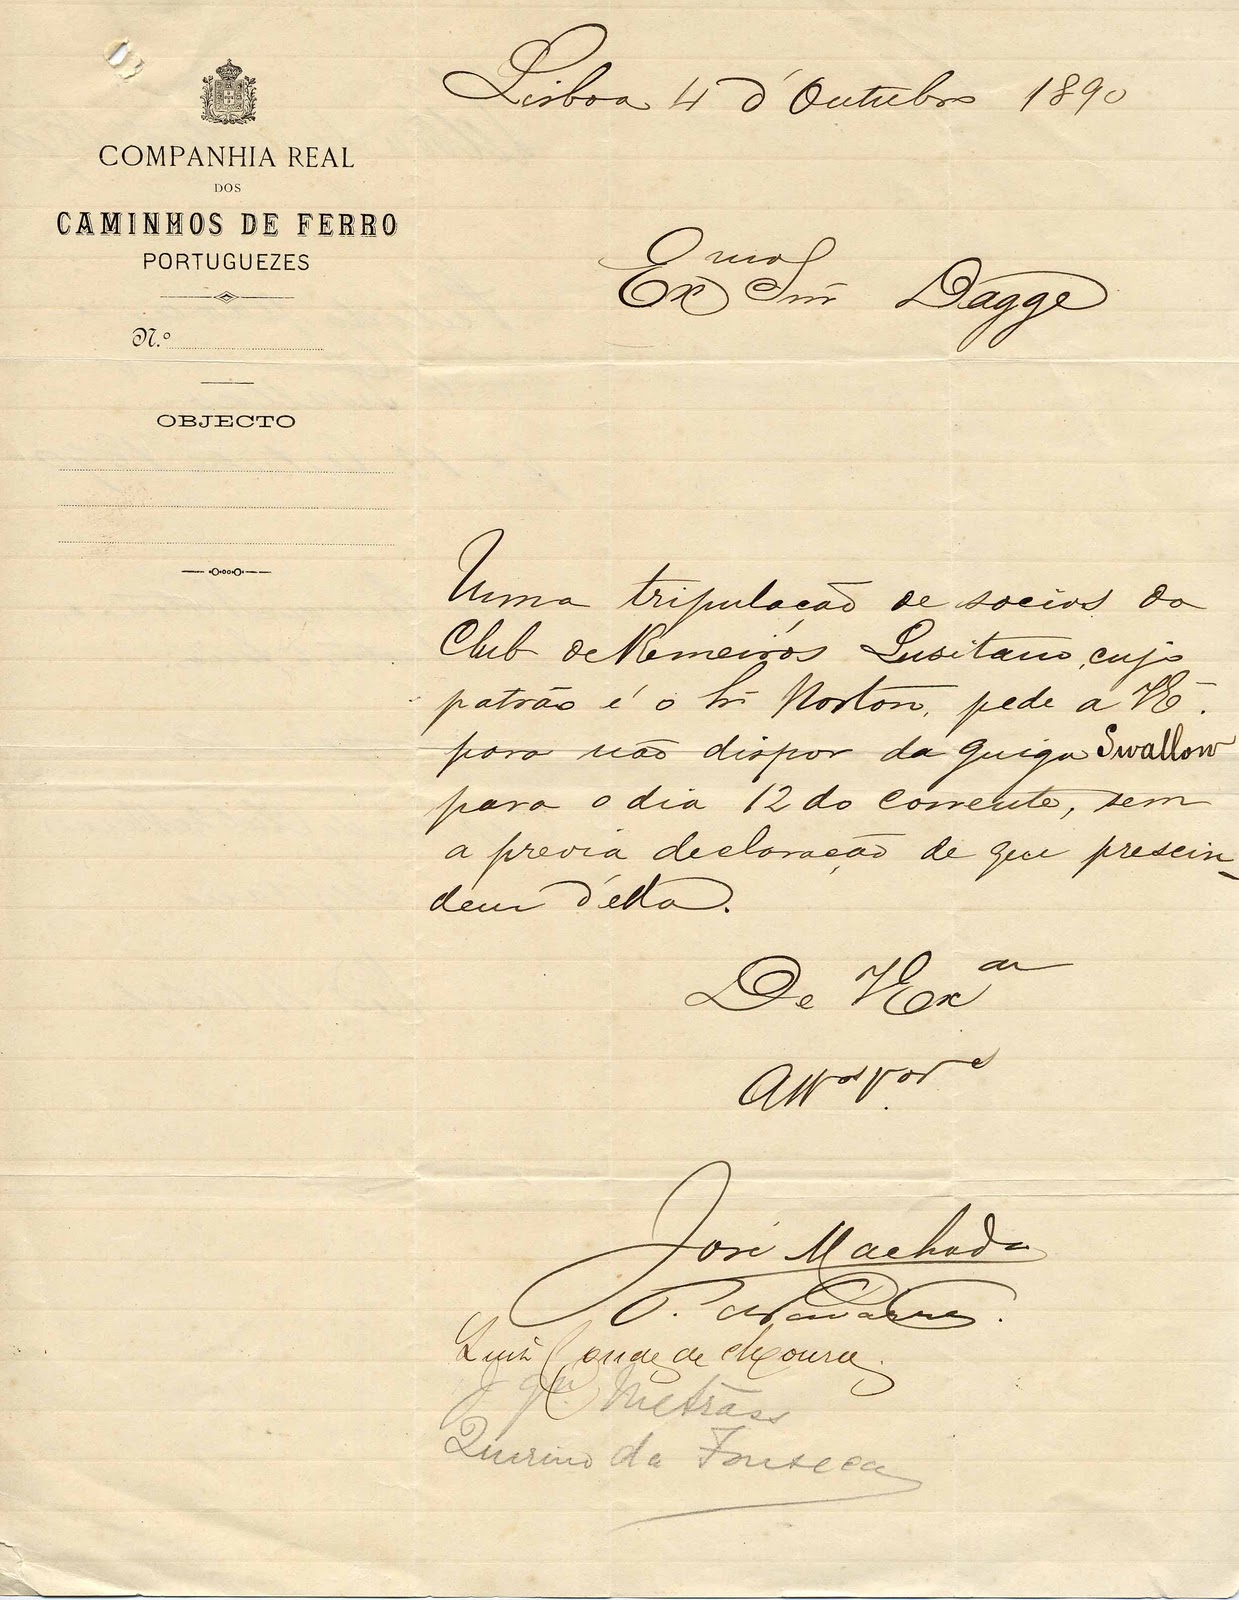 COMPANHIA REAL
DOS
CAMINHOS DE FERRO
PORTUGUEZES
N.º
OBJECTO
Lisboa 4 d'Outubro 1890
Exmo Snr Dagge
Uma tripulação de socios do
Club de Remeiros Lusitano, cujo
patrão é o Sr Norton, pede a V.E.
para não dispor da guiga Swallow
para o dia 12 do corrente, sem
a previa declaração de que prescin-
dem d'ella.
De V Exa
Attos Vores
José Machado
Luiz Conde de Moura
Metrass
Quirino da Fonseca